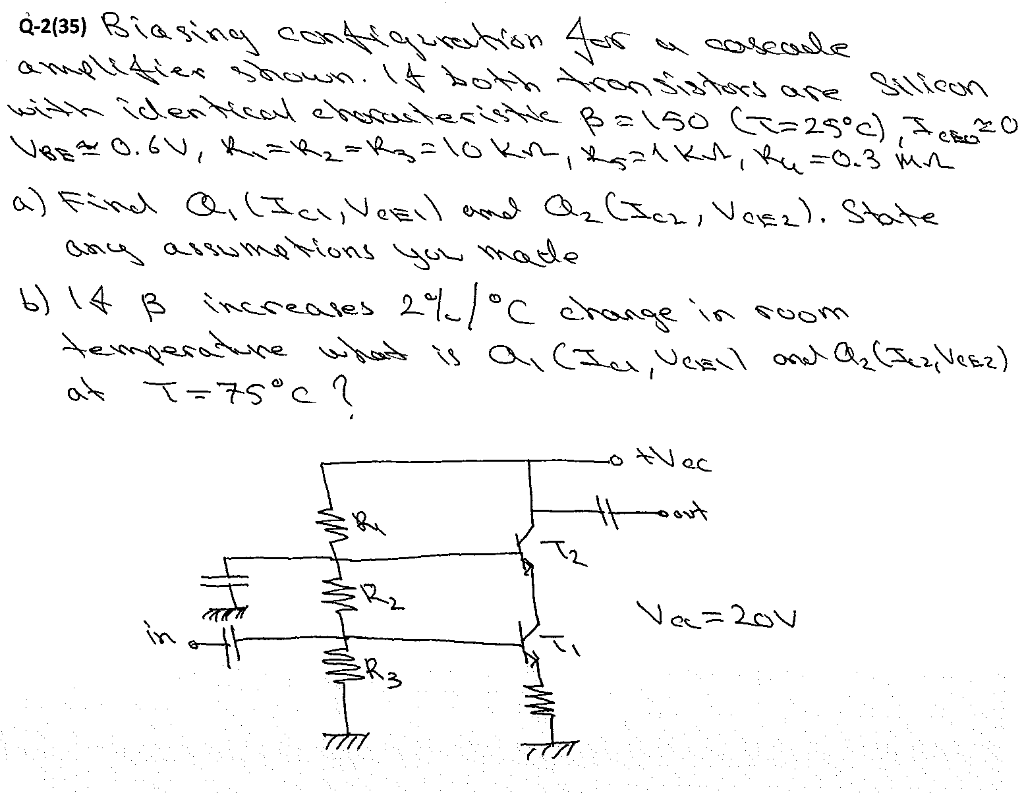 Q-2(35) Biasing configuration for a cascade
amplifier shown. If both transistors are Silicon
with identical characteristic β=150 (T=25°C), ICEO≈0
VBE≈0.6V, R1=R2=R3=10 KΩ, R5=1 KΩ, R4=0.3 MΩ
a) Find Q1(IC1, VCE1) and Q2(IC2, VCE2). State
any assumptions you made
b) If β increases 2%/°C change in room
temperature what is Q1(IC1, VCE1) and Q2(IC2, VCE2)
at T=75°C?
+Vcc
out
T2
R2
in
T1
R3
Vcc=20V